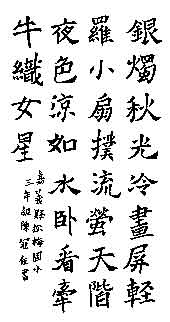 銀燭秋光冷畫屏輕
羅小扇撲流螢天階
夜色涼如水卧看牽
牛織女星
嘉義縣松梅國小
三年組陳冠佐書